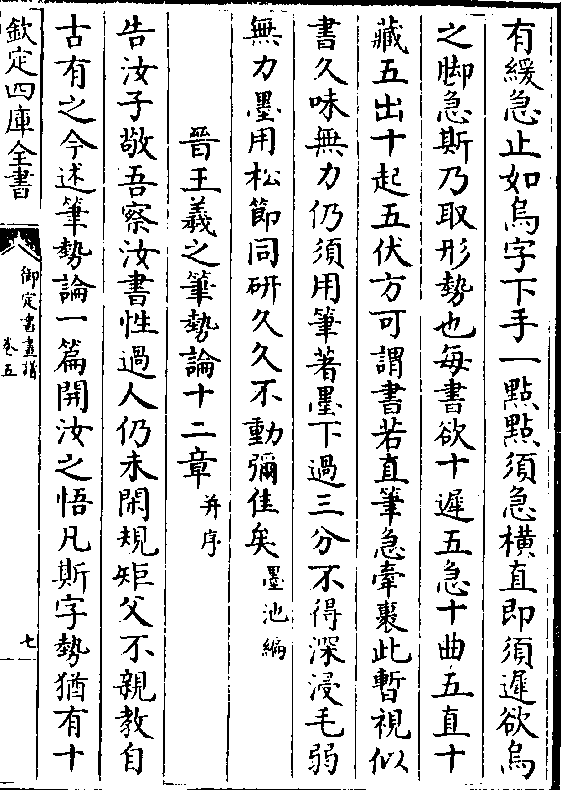 有緩急止如烏字下手一點點須急橫直即須遲欲烏
之脚急斯乃取形勢也每書欲十遲五急十曲五直十
藏五出十起五伏方可謂書若直筆急牽裹此暫視似
書久味無力仍須用筆著墨下過三分不得深浸毛弱
無力墨用松節同研久久不動彌佳矣墨池編
晉王羲之筆勢論十二章并序
告汝子敬吾察汝書性過人仍未閑規矩父不親教自
古有之今述筆勢論一篇開汝之悟凡斯字勢猶有十
欽定四庫全書
御定書畫譜
卷五
七